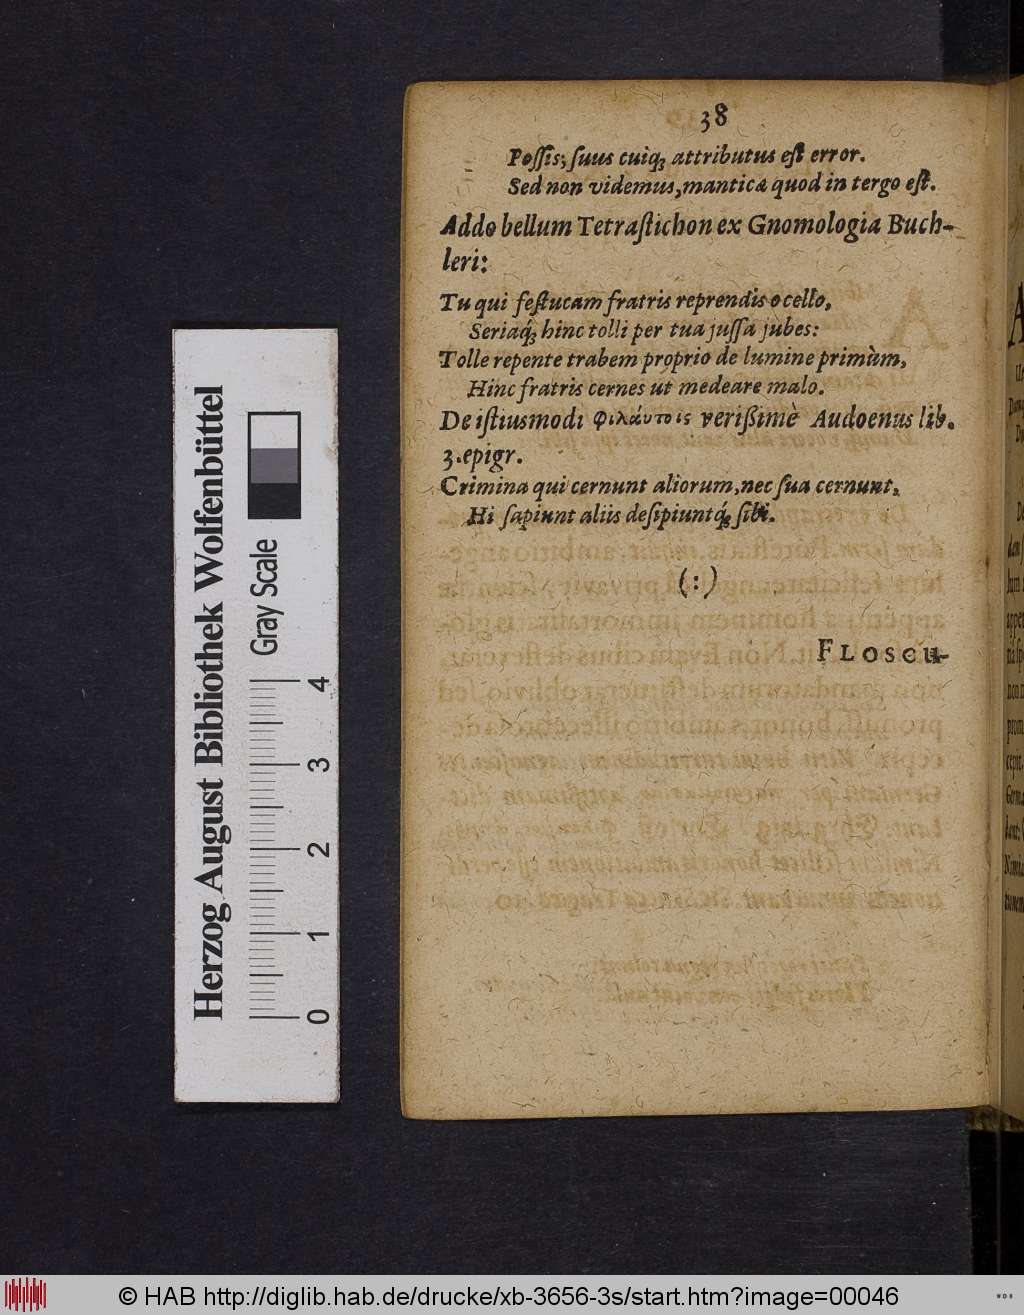 38
Poſſis; ſuus cuiq́; attributus eſt error.
Sed non videmus, manticæ quod in tergo eſt.
Addo bellum Tetraſtichon ex Gnomologia Buch-
leri:
Tu qui feſtucam fratris reprendis ocello,
Seriaq́; hinc tolli per tua juſſa jubes:
Tolle repente trabem proprio de lumine primùm,
Hinc fratris cernes ut medeare malo.
De iſtiusmodi φιλάυτοις verißimè Audoenus lib.
3. epigr.
Crimina qui cernunt aliorum, nec ſua cernunt,
Hi ſapiunt aliis deſipiuntq́; ſibi.
(:)
FLOSCU-
Herzog August Bibliothek Wolfenbüttel
Gray Scale
0 1 2 3 4
© HAB http://diglib.hab.de/drucke/xb-3656-3s/start.htm?image=00046